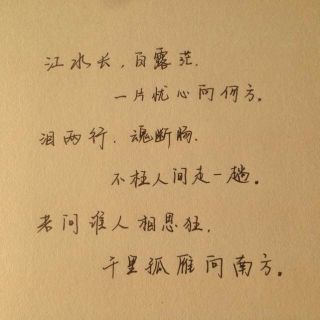 江水长，白露茫.
一片忧心向何方。
泪两行，魂断肠.
不枉人间走一趟。
若问谁人相思狂，
千里孤雁向南方。